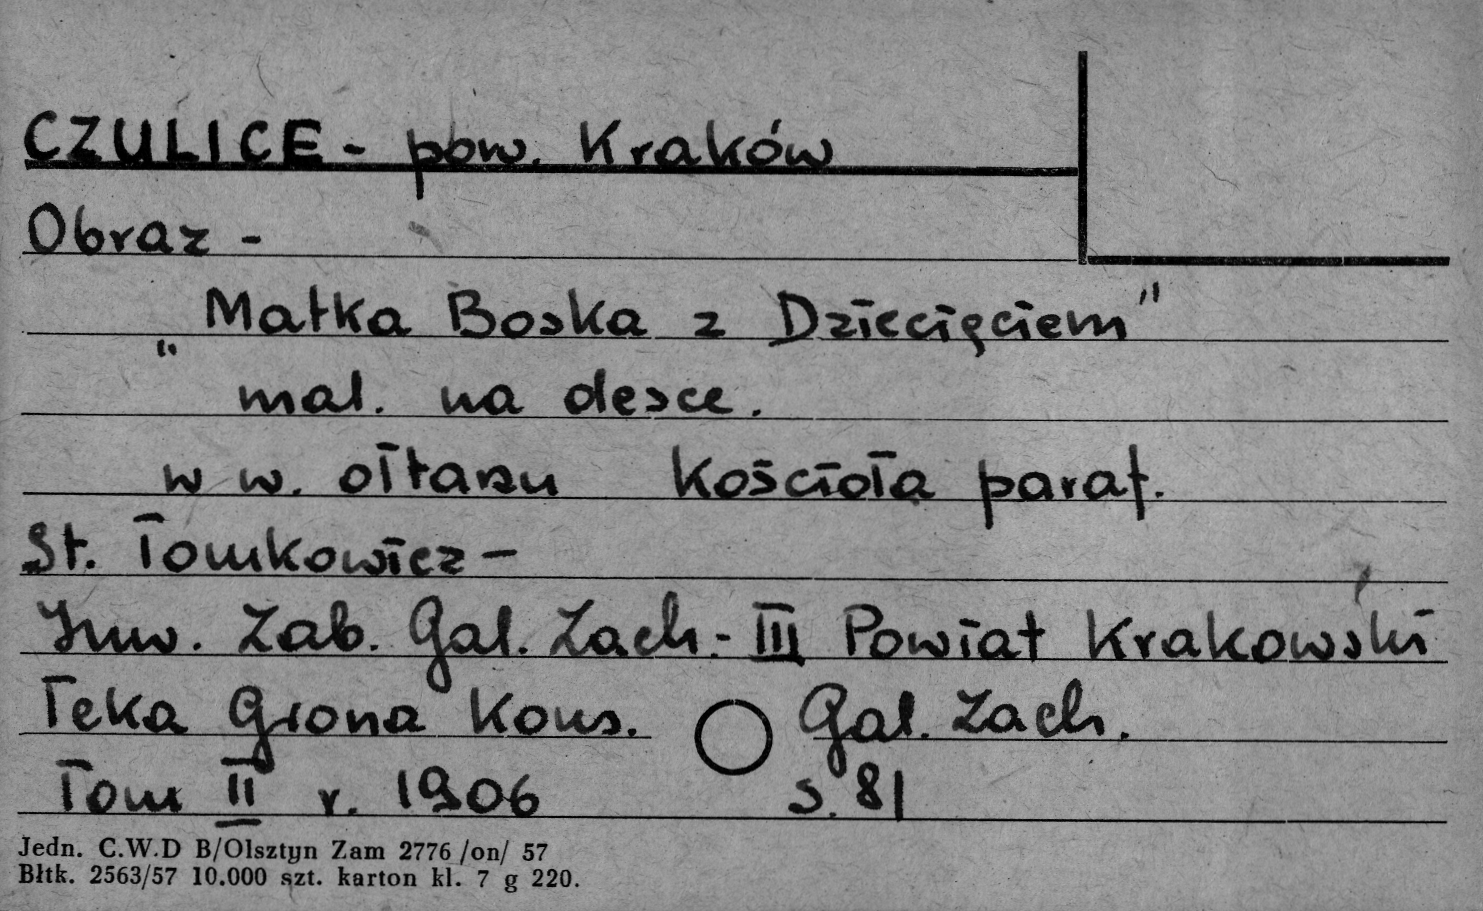 CZULICE - pow. Kraków
Obraz -
"Matka Boska z Dziecięciem"
mal. na desce.
w w. ołtarzu Kościoła paraf.
St. Tomkowicz -
Inw. Zab. Gal. Zach. - III Powiat Krakowski
Teka Grona Kons. Gal. Zach.
Tom II r. 1906 s. 81
Jedn. C.W.D B/Olsztyn Zam 2776 /on/ 57
Błtk. 2563/57 10.000 szt. karton kl. 7 g 220.